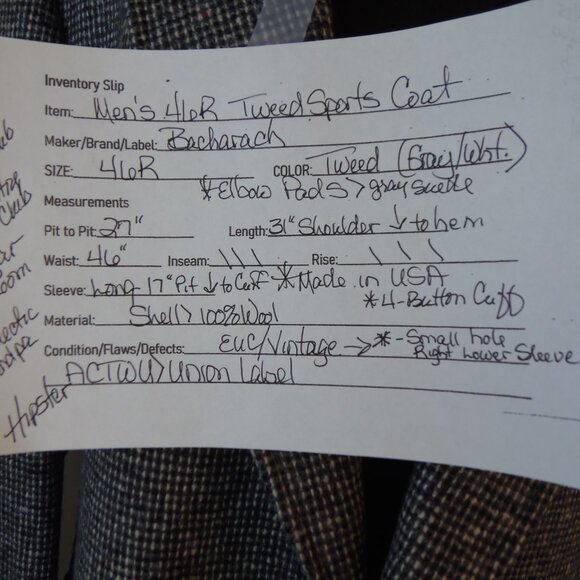 Inventory Slip
Item: Men's 46R Tweed Sports Coat
Maker/Brand/Label: Bacharach
SIZE: 46R COLOR: Tweed (Gray/Wht.)
*Elbow Pads > gray suede
Measurements
Pit to Pit: 27" Length: 31" Shoulder ↓ to hem
Waist: 46" Inseam: \ \ \ Rise: \ \ \
Sleeve: Long 17" Pit ↓ to Cuff *Made in USA
*4-Button Cuff
Material: Shell > 100% Wool
Condition/Flaws/Defects: EUC/Vintage → *-Small hole
Right Lower Sleeve
ACTWU > Union Label
Club
Hipster